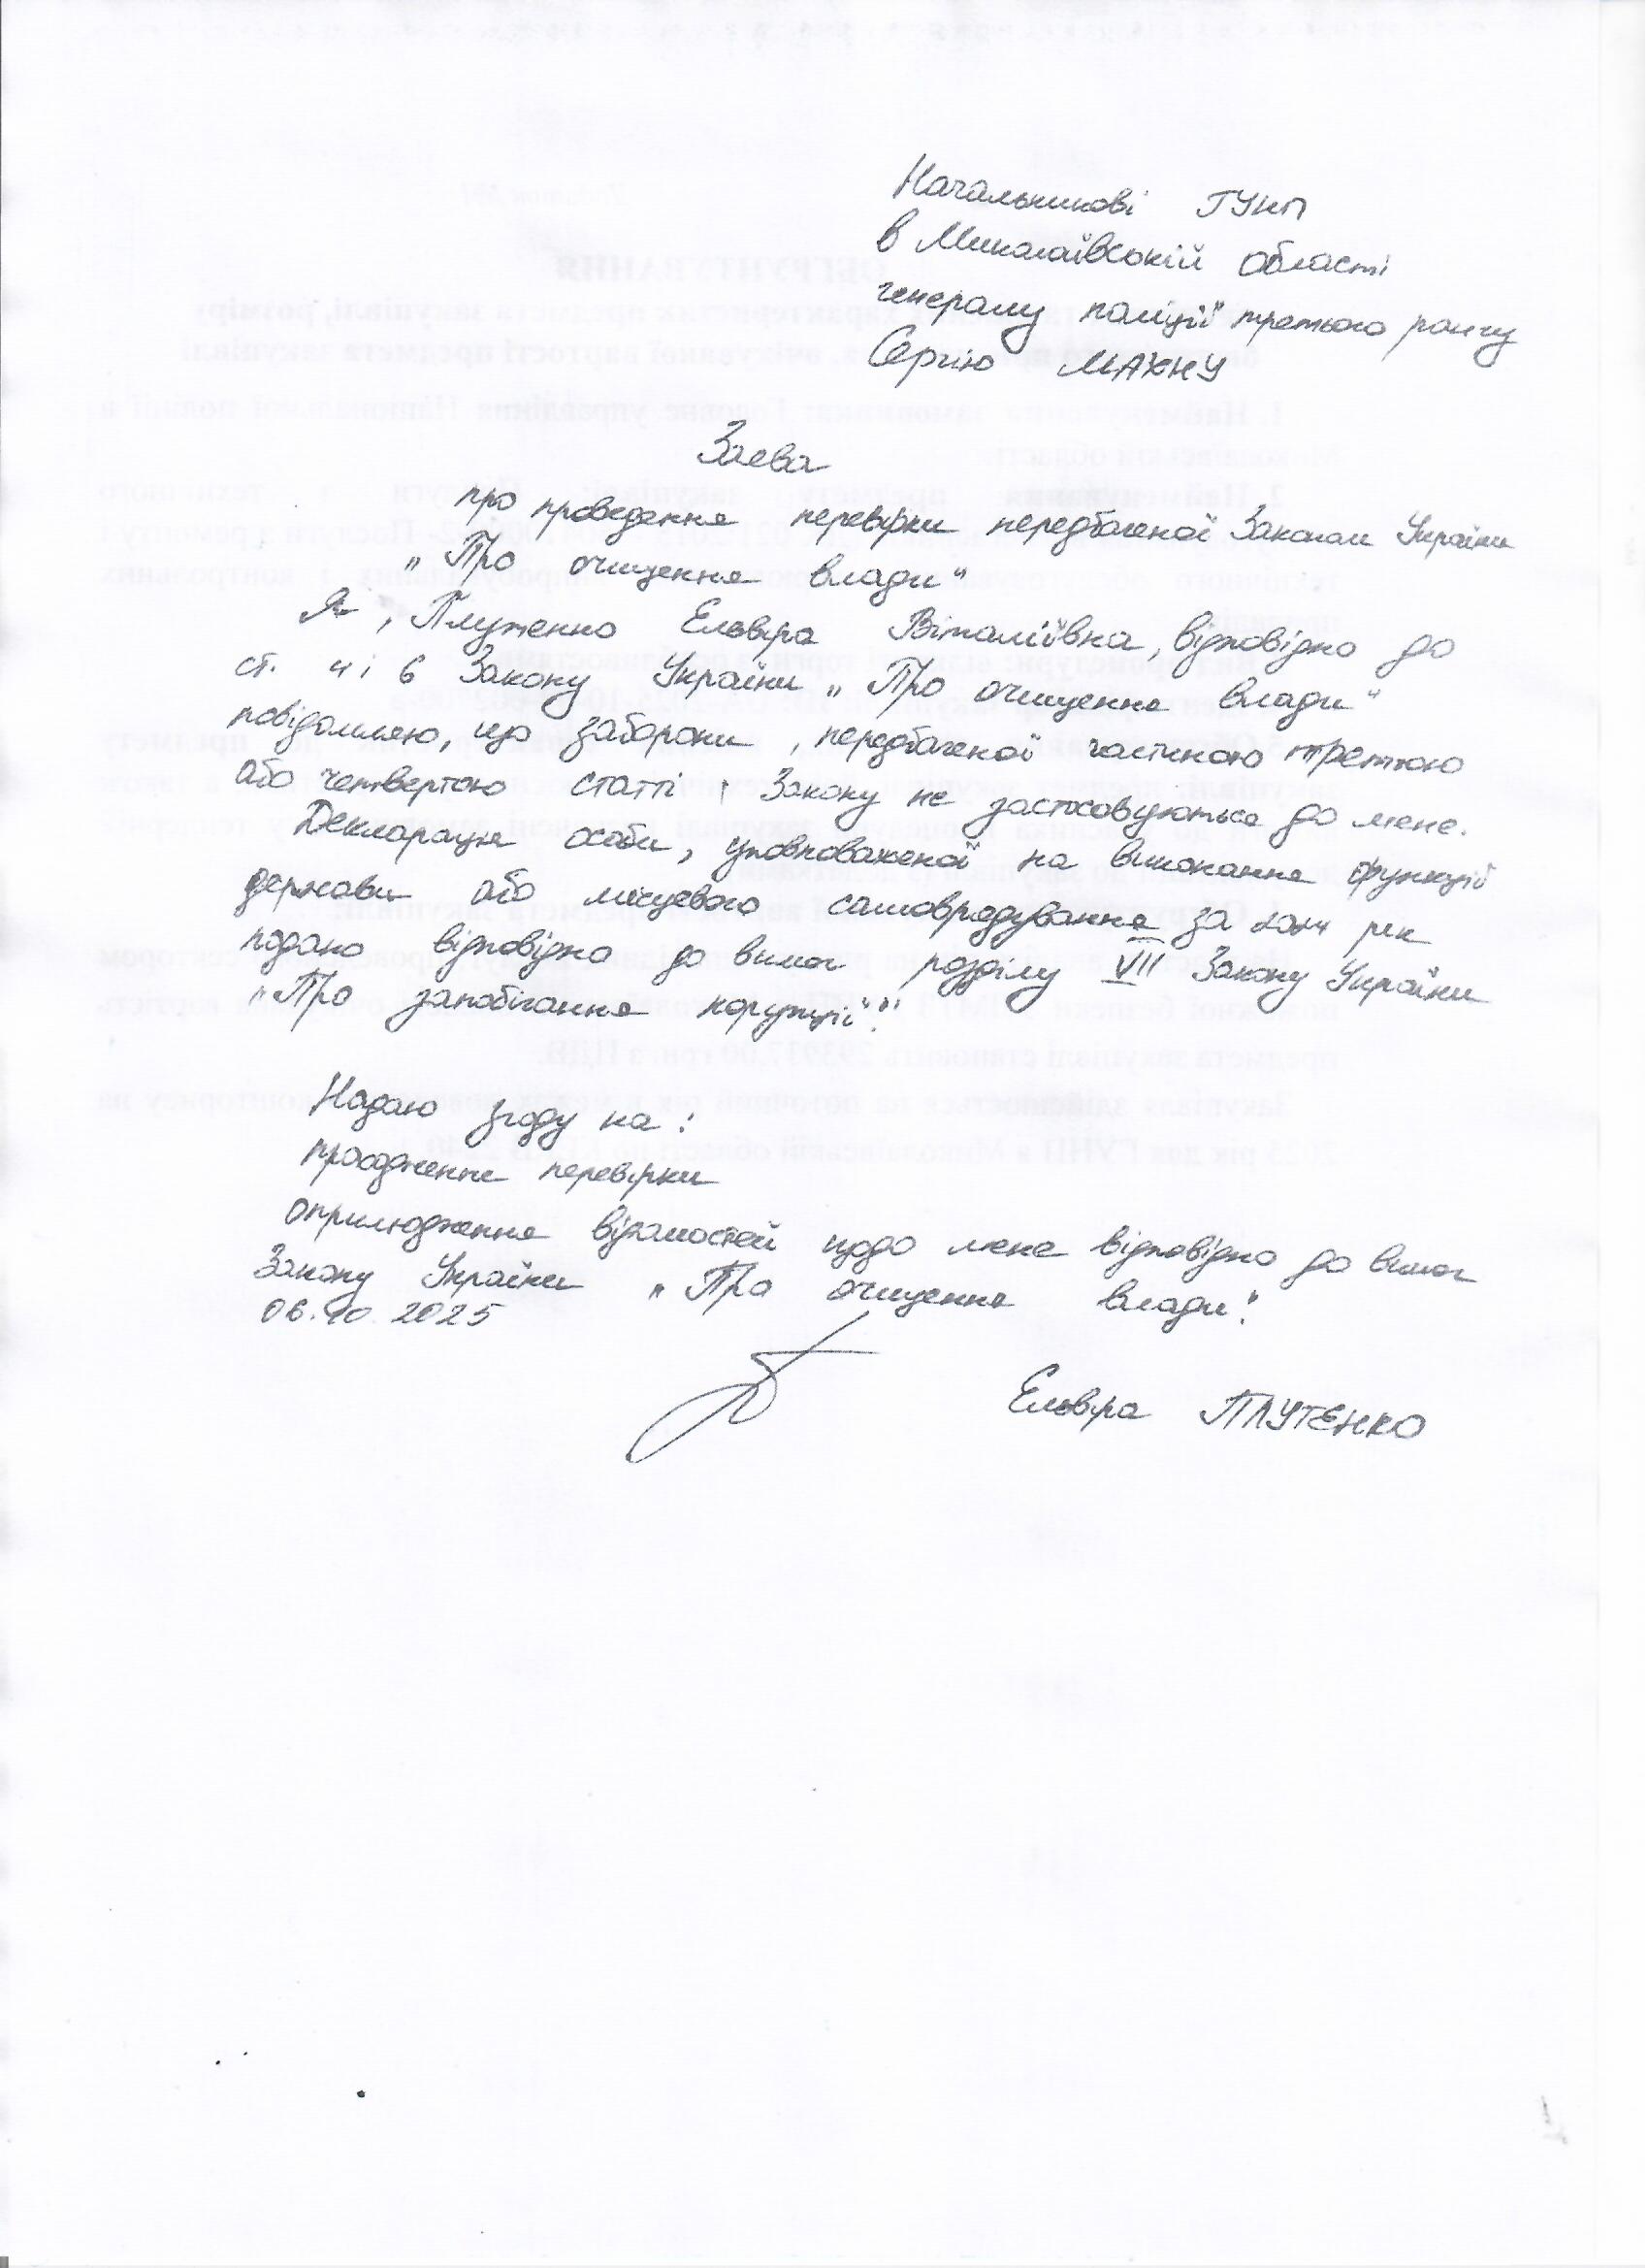 Начальникові ГУНП
в Миколаївській області
генералу поліції третього рангу
Сергію МАХНУ
Заява
про проведення перевірки передбаченої Законом України
„Про очищення влади"
Я, Плутенко Ельвіра Віталіївна, відповідно до
ст. 4 і 6 Закону України „Про очищення влади"
повідомляю, що заборони, передбаченої частиною третьою
або четвертою статті 1 Закону не застосовуються до мене.
Декларація особи, уповноваженої на виконання функцій
держави або місцевого самоврядування за 2024 рік
подано відповідно до вимог розділу VII Закону України
„Про запобігання корупції".
Надаю згоду на:
проодження перевірки
оприлюдження відомостей щодо мене відповідно до вимог
Закону України „Про очищення влади".
06.10.2025
Ельвіра ПЛУТЕНКО